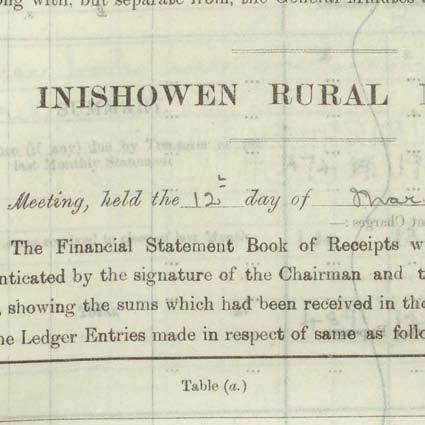 ng with, but separate from, the General Minutes
INISHOWEN RURAL
Meeting, held the 12 day of Mar
The Financial Statement Book of Receipts w
nticated by the signature of the Chairman and t
, showing the sums which had been received in the
ne Ledger Entries made in respect of same as follo
Table (a.)